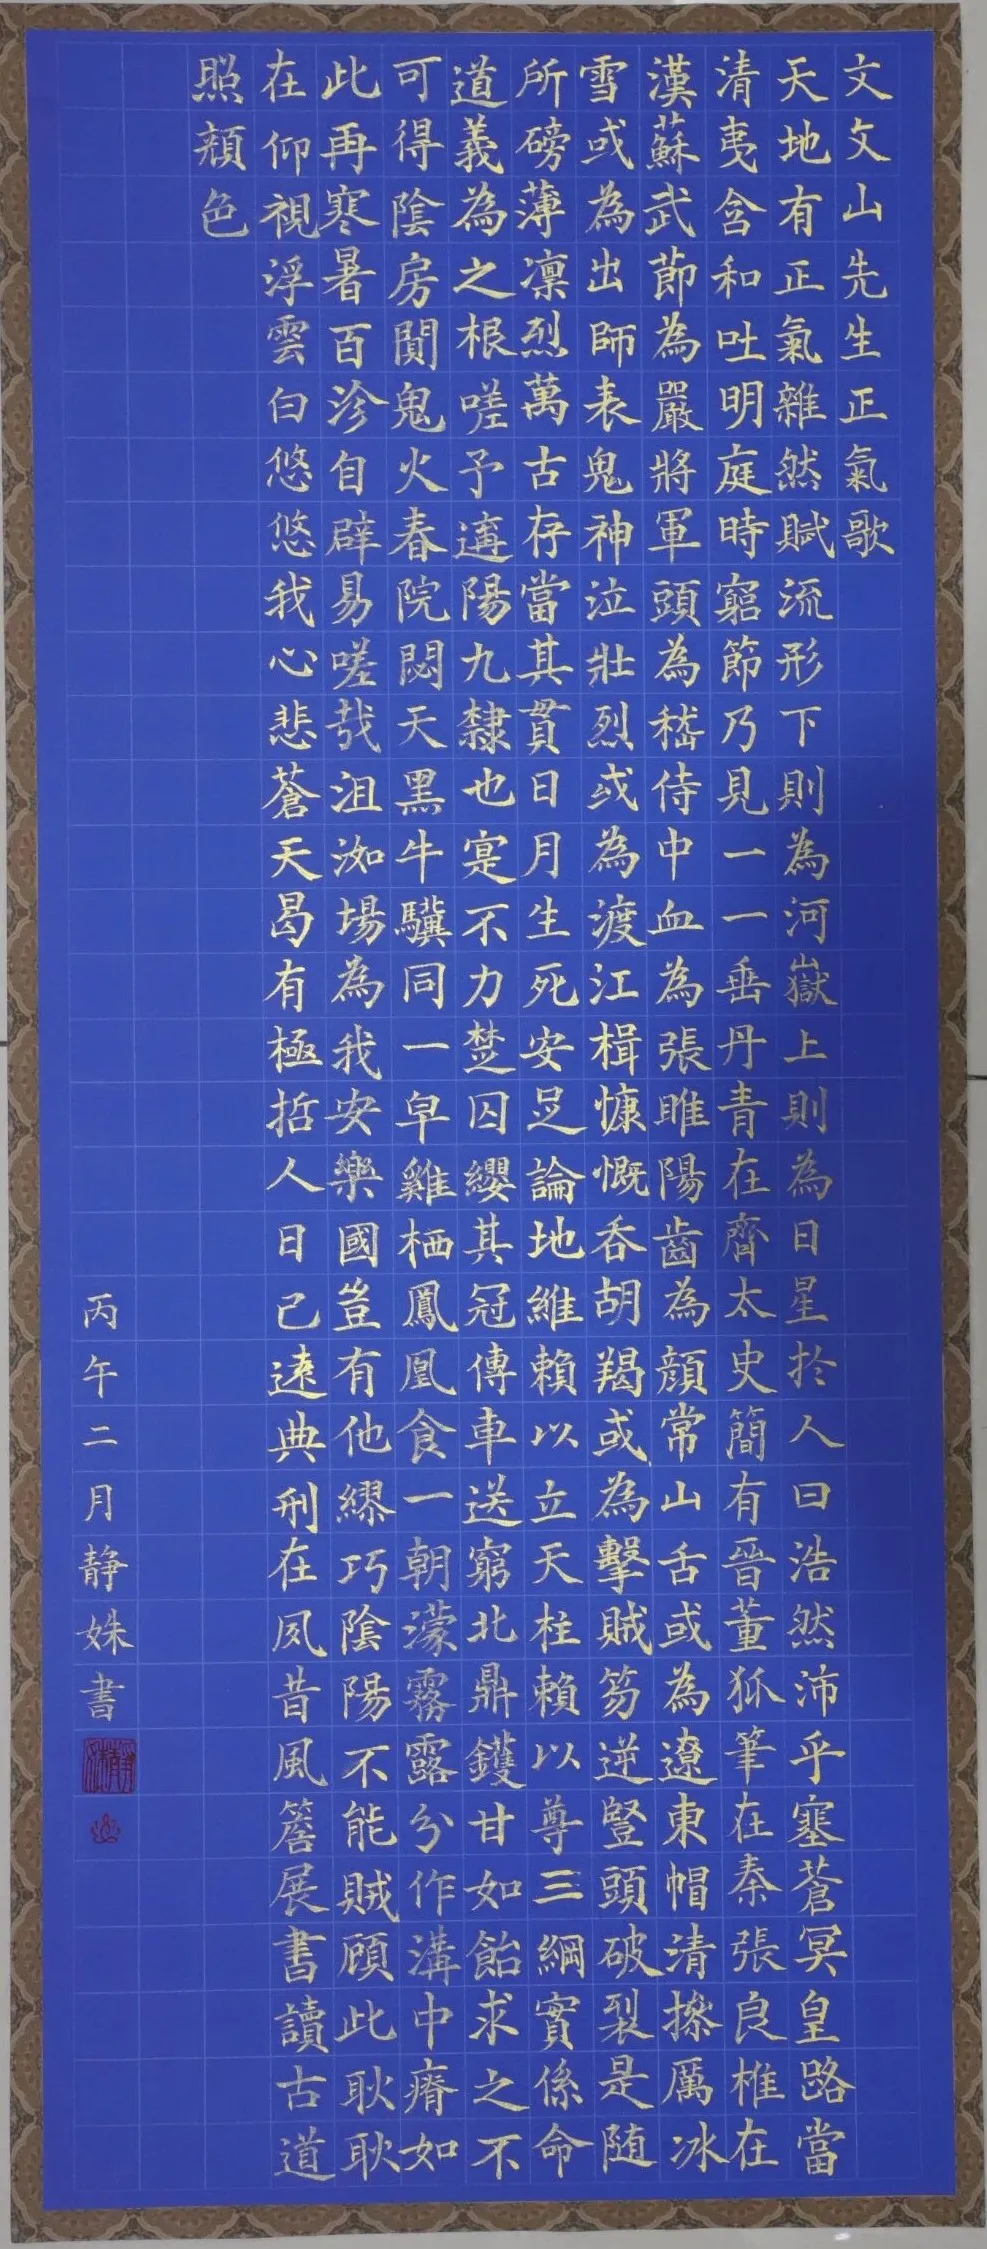 文文山先生正氣歌
天地有正氣雜然賦流形下則為河嶽上則為日星於人曰浩然沛乎塞蒼冥皇路當
清夷含和吐明庭時窮節乃見一一垂丹青在齊太史簡有晉董狐筆在秦張良椎在
漢蘇武節為嚴將軍頭為嵇侍中血為張睢陽齒為顏常山舌或為遼東帽清操厲冰
雪或為出師表鬼神泣壯烈或為渡江楫慷慨吞胡羯或為擊賊笏逆豎頭破裂是随
所磅薄凛烈萬古存當其貫日月生死安足論地維賴以立天柱賴以尊三綱實係命
道義為之根嗟予遘陽九隸也寔不力楚囚纓其冠傳車送窮北鼎鑊甘如飴求之不
可得陰房闃鬼火春院閟天黑牛驥同一皁雞栖鳳凰食一朝濛霧露分作溝中瘠如
此再寒暑百沴自辟易嗟哉沮洳場為我安樂國豈有他繆巧陰陽不能賊顧此耿耿
在仰視浮雲白悠悠我心悲蒼天曷有極哲人日已遠典刑在夙昔風簷展書讀古道
照顔色
丙午二月静姝書